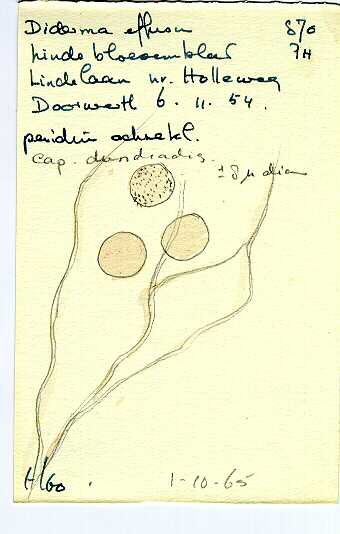 Diderma effusum 870
Lindebloesemblad 7H
Lindelaan nr. Holleweg
Doorwerth 6.11.54.
peridium ochrekl.
Cap. dendriadis.
± 8 µ diam
H/60 . 1-10-65